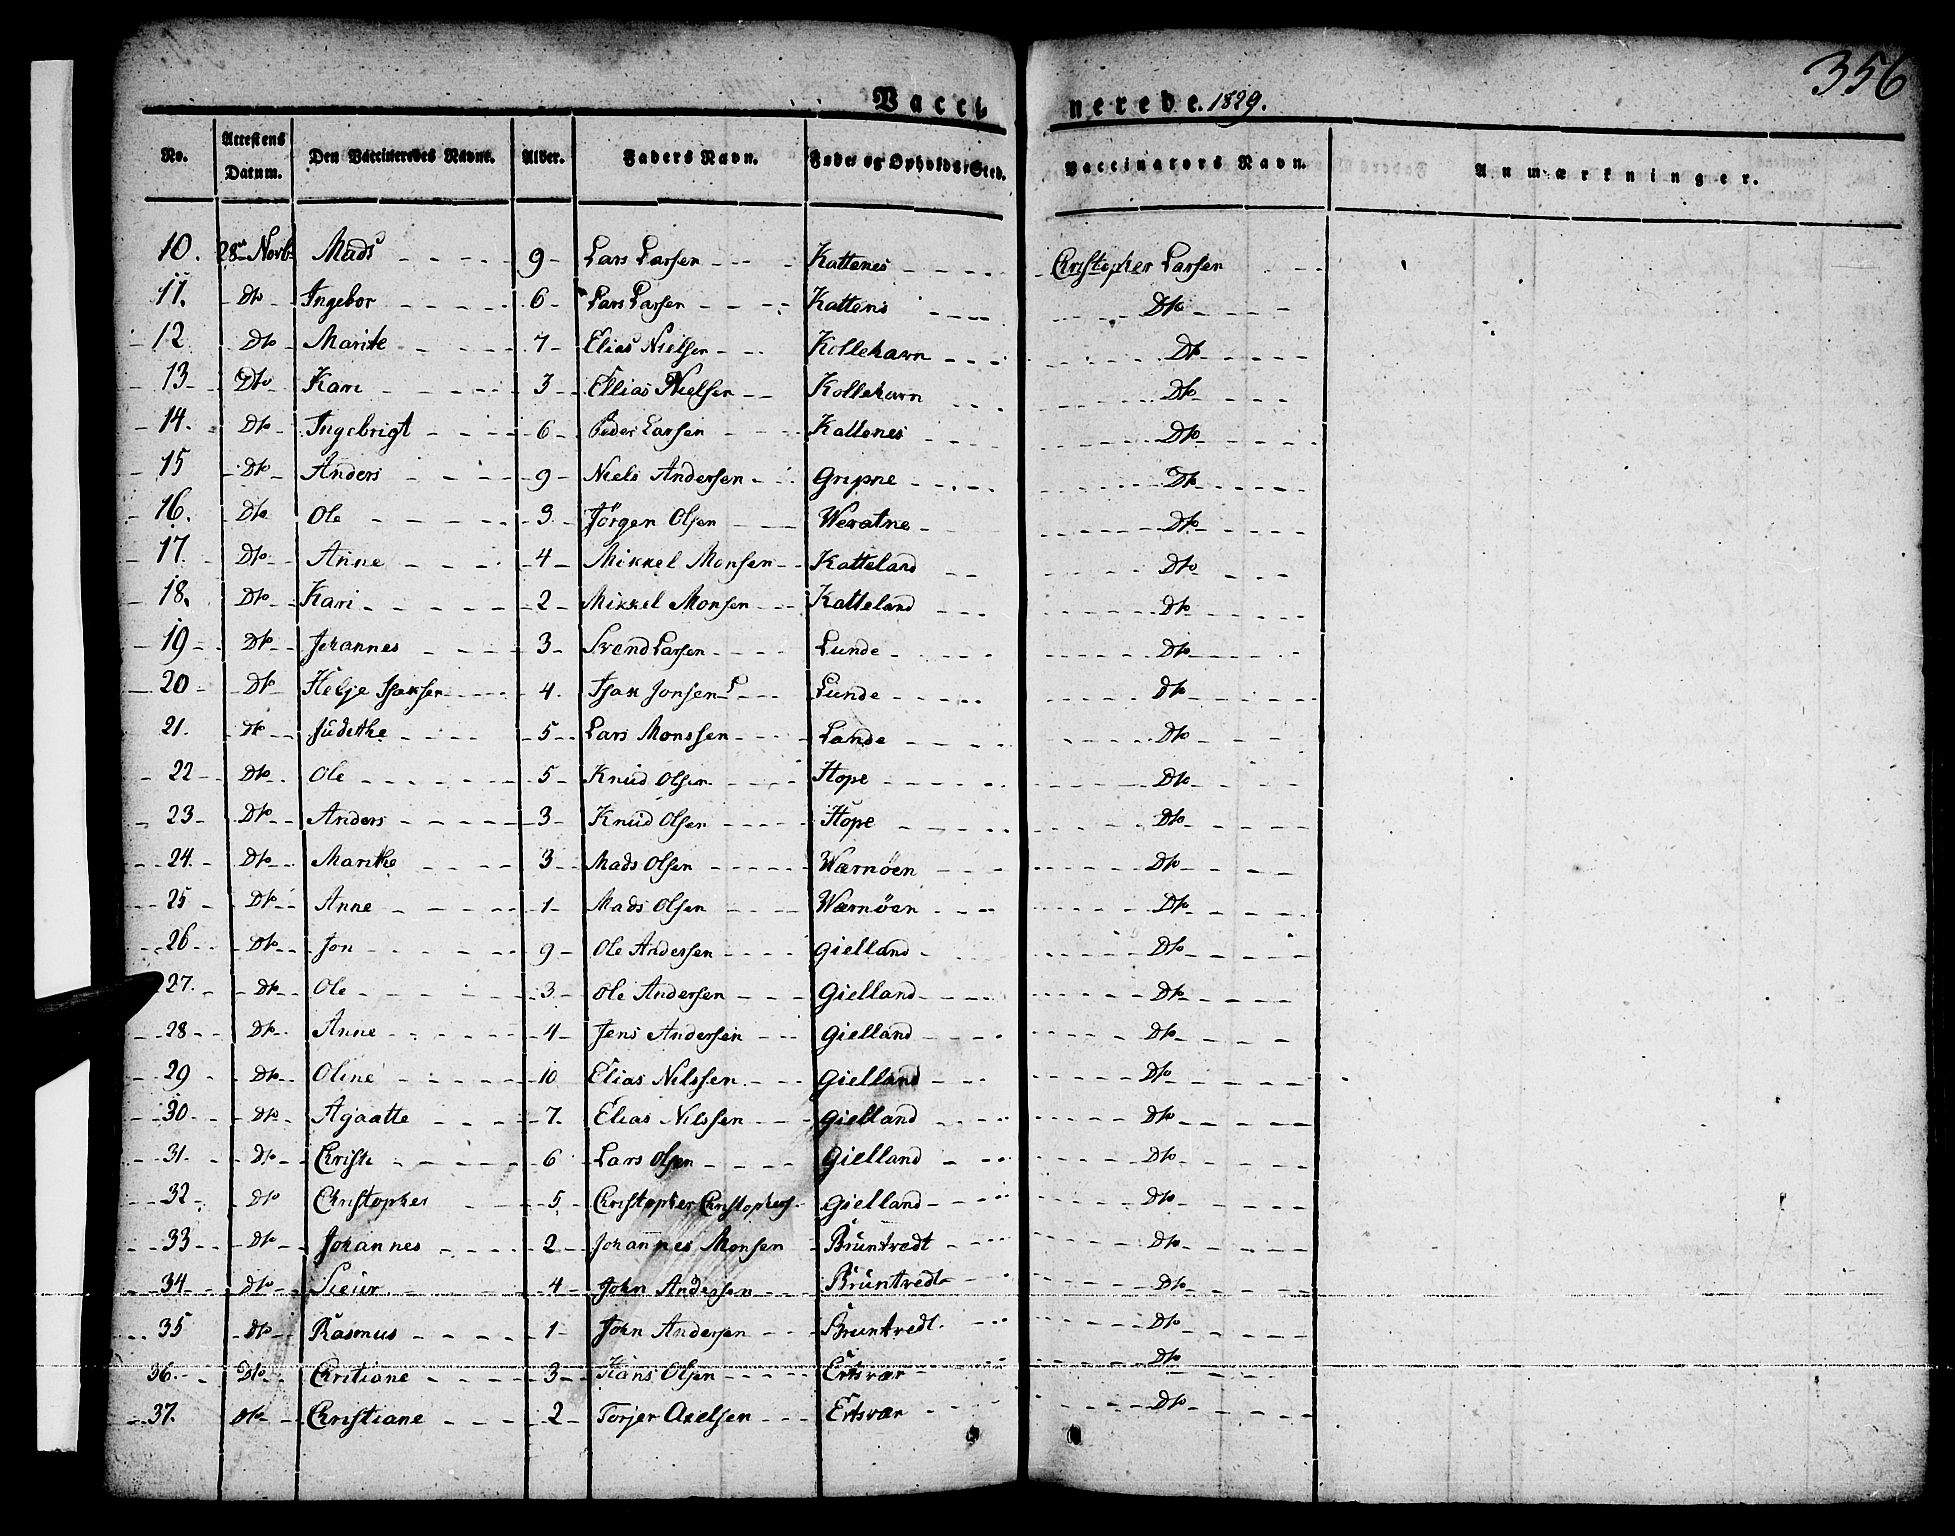 356
Vacci nerede. 1829.
No. Attestens Datum. Den Vaccineredes Navne. Alder. Faders Navn. Fødes og Opholds-Sted. Vaccinators Navn. Anmærkninger.
10. 28de Novb. Mads 9 Lars Larsen Kattenes Christopher Larsen
11. Dto Ingebor 6 Lars Larsen Kattens Dto
12. Dto Marite 7 Elias Nielsen Kollehavn Dto
13 Dto Kari 3 Ellias Nielsen Kollehavn Dto
14. Dto Ingebrigt 6 Peder Larsen Kattenes Dto
15 Dto Anders 9 Niels Andersen Gripne Dto
16. Dto Ole 3 Jörgen Olsen Weratne Dto
17. Dto Anne 4 Mikkel Monsen Katteland Dto
18. Dto Kari 2 Mikkel Monsen Katteland Dto
19 Dto Johannes 3 Svend Larsen Lunde Dto
20 Dto Helje Isaksen 4. Isak Jonsen Lunde Dto
21. Dto Judithe 5 Lars Monssen Lande Dto
22 Dto Ole 5 Knud Olsen Hope Dto
23 Dto Anders 3 Knud Olsen Hope Dto
24. Dto Marithe 3 Mads Olsen Wærnöen Dto
25 Dto Anne 1 Mads Olsen Wærnöen Dto
26 Dto Jon 9 Ole Andersen Gielland Dto
27. Dto Ole 3 Ole Andersen Gielland Dto
28 Dto Anne 4 Jens Andersen Gielland Dto
29 Dto Oline 10 Elias Nilssen Gielland Dto
30 Dto Agaatte 7. Elias Nilssen Gielland Dto
31. Dto Christi 6 Lars Olsen Gielland Dto
32 Dto Christopher 5 Christopher Christophers. Gielland Dto
33 Dto Johannes 2 Johannes Monsen Bruntvedt Dto
34 Dto Sieur 4 John Andersen Bruntvedt Dto
35 Dto Rasmus 1 John Andersen Bruntvedt. Dto
36. Dto Chritiane 3 Hans Olsen Ertsvær Dto
37. Dto Christiane 2 Torjer Axelsen Ertsvær Dto